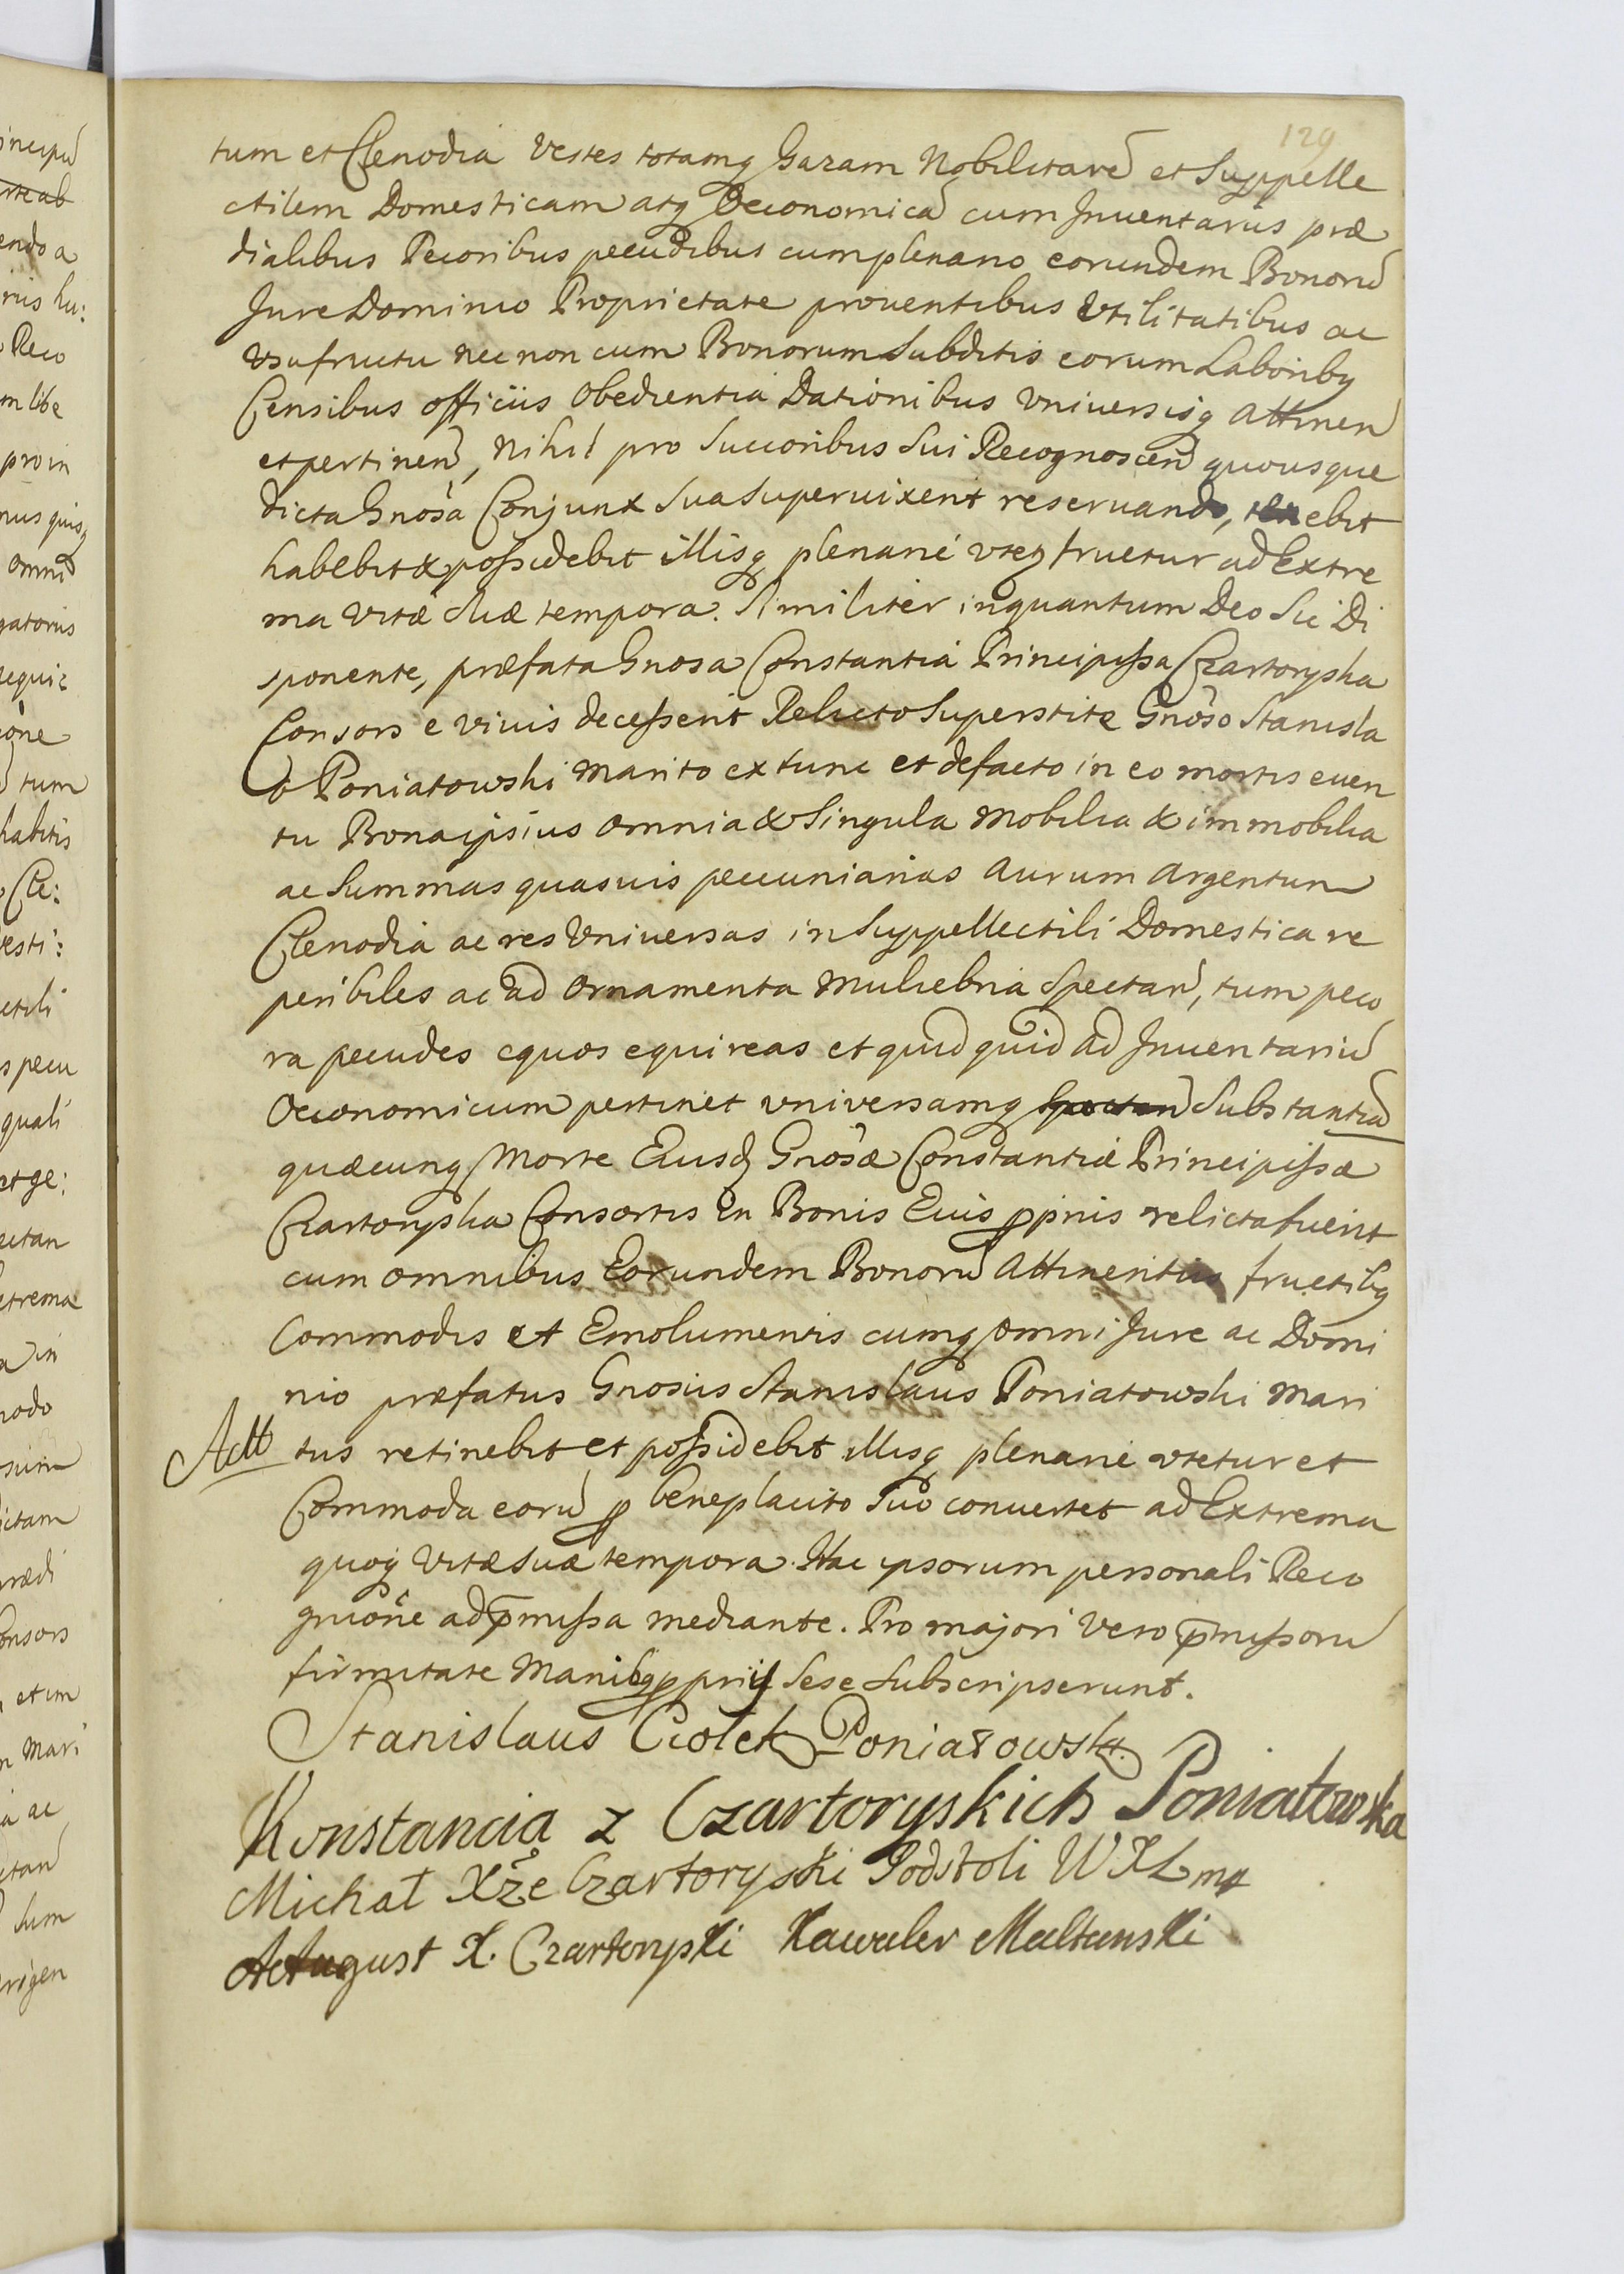 129
tum et Clenodia Vestes totamq Gazam Nobilitarē et Suppelle
ctilem Domesticam atq Oeconomicā cum Inuentariis præ
dialibus Pecoribus pecudibus cum plenario eorundem Bonorū
Jure Dominio Proprietate prouentibus Vtilitatibus ac
Vsufructu nec non cum Bonorum Subditis eorum Laboribq
Censibus officiis Obedientia Dationibus Vniuersisq Attinen
et pertinen, Nihil pro Succoribus Sui Recognoscen quousque
dicta Gnosa Conjunx Sua Superuixerit reseruando, tenebit
habebit & poſsidebit illisq plenarié vtez fruetur ad Extre
ma Vitæ Suæ tempora. Similiter inquantum Deo Sic Di
sponente, præfata Gnosa Constantia Principiſsa Czartoryska
Consors é viuis deceſserit Relicto Superstite Gnoso Stanisla
o Poniatowski Marito ex tunc et de facto in eo mortis euen
tu Bona ipsius Omnia & Singula Mobilia & immobilia
ac Summas quasuis pecuniarias Aurum Argentum
Clenodia ac res Vniuersas in Suppellectili Domestica re
peribiles ac ad Ornamenta Muliebria Spectan, tum peco
ra pecudes equos equireas et quid quid ad Inuentariū
Oeconomicum pertinet vniversamq Spectan Substantiā
quæcunq Morte Eiusd Gnosæ Constantiæ Principiſsæ
Czartoryska Consortis in Bonis Eius ppriis relicta fuerit
cum omnibus Eorundem Bonorū Attinentiis fructibq
Commodis et Emolumentis cumq omni Jure ac Domi
nio præfatus Gnosus Stanislaus Poniatowski Mari
tus retinebit et poſsidebit illisq plenarié vtetur et
Commoda eorū p beneplacito Suo conuertet ad Extrema
quoq Vitæ Suæ tempora. Hac ipsorum personali Reco
gnicōne ad p̄miſsa mediante. Pro majori Vero p̄miſsorū
firmitate Manibq ppriis Sese Subscripserunt.
Stanislaus Ciołek Poniatowski
Konstancia z Czartoryskich Poniatowska
Michał Xże Czartoryski Podstoli WXL mp
August X. Czartoryski Kawaler Maltanski